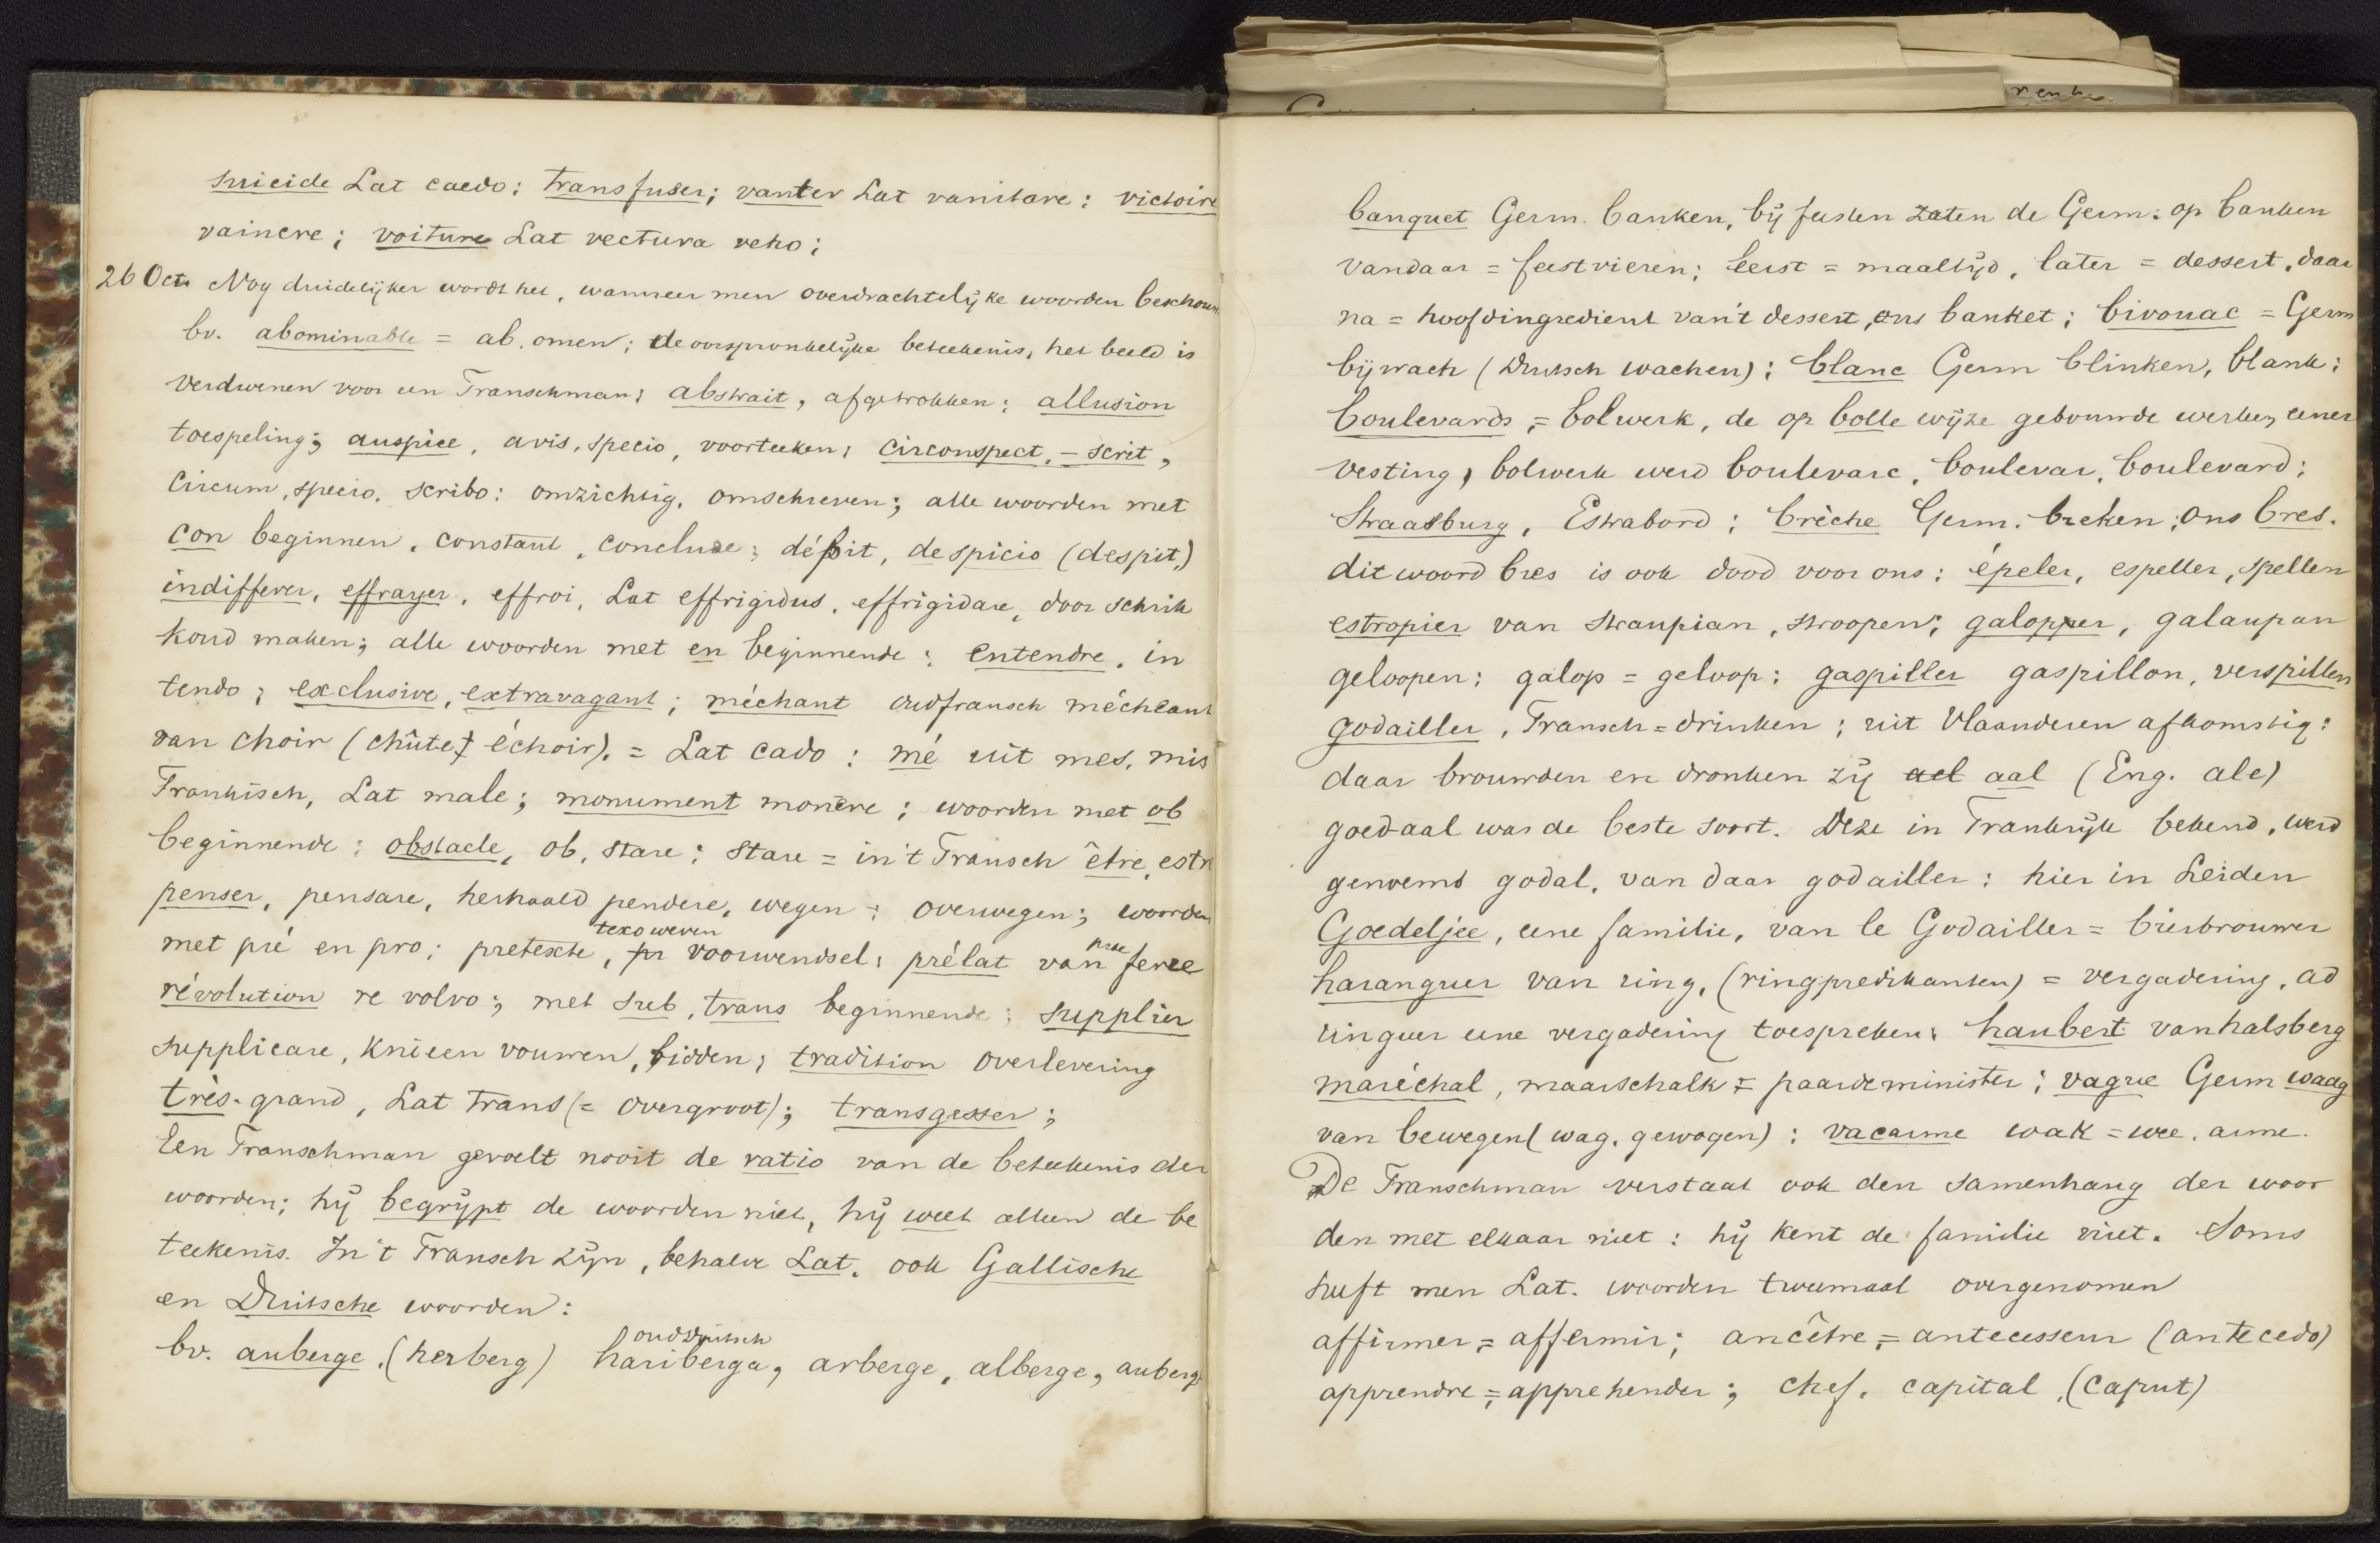 suicide Lat caedo: transfuser; vanter Lat vanitare: victoire
vaincre; voiture Lat vectura veho;
26 Oct. Nog duidelijker wordt het, wanneer men overdrachtelijke woorden beschouw
bv. abominable = ab. omen; de oorspronkelijke beteekenis, het beeld is
verdwenen voor een Franschman; abstrait, afgetrokken; allusion
toespeling; auspice, avis, specio, voorteeken; circonspect, - scrit,
circum, specio, scribo: omzichtig, omschreven; alle woorden met
con beginnen, constant, conclure; dépit, despicio (despit,)
indifferer, effrayer, effroi, Lat effrigidus, effrigidare, door schrik
koud maken; alle woorden met en beginnende; entendre, in
tendo; exclusive, extravagant; méchant oudfransch mécheant
van choir (chûte, échoir). = Lat cado: mé uit mes, mis
Frankisch, Lat male; monument monēre; woorden met ob
beginnende: obstacle, ob, stare; stare = in 't Fransch être, estr
penser, pensare, herhaald pendere, wegen; overwegen; woorden
texo weven
met pré en pro; pretexte, voorwendsel; prélat van prae ferre
révolution re volvo; met sub, trans beginnende; supplier
supplicare, knieen vouwen, bidden; tradition overlevering
très-grand, Lat trans (= overgroot); transgesser;
Een Franschman gevoelt nooit de ratio van de beteekenis der
woorden; hij begrijpt de woorden niet, hij weet alleen de be
teekenis. In 't Fransch zijn, behalve Lat. ook Gallische
en Duitsche woorden:
ouddduitsch
bv. auberge, (herberg) hariberga, arberge, alberge, auberge
banquet Germ. banken, bij feesten zaten de Germ: op banken
vandaar = feestvieren; eerst = maaltijd, later = dessert, daar
na = hoofdingredient van 't dessert, ons banket; bivouac = Germ
bijwach (Duitsch wachen); blanc Germ blinken, blank;
boulevards, = bolwerk, de op bolle wijze gebouwde werken eener
vesting, bolwerk werd boulevarc, boulevar, boulevard;
Straatburg, Estrabord; brèche Germ. breken; ons bres.
dit woord bres is ook dood voor ons; épeler, espeller, spellen
estropier van straupian, stroopen; galopper, galaupan
geloopen; galop = geloop; gaspiller gaspillon, verspillen
godailler, Fransch = drinken; uit Vlaanderen afkomstig:
daar brouwden en dronken zij ael aal (Eng. ale)
goed-aal was de beste soort. Deze in Frankrijk bekend, werd
genoemd godal, van daar godailler: hier in Leiden
Goedeljee, eene familie, van le Godailler = bierbrouwer
haranguer van ring, (ringpredikanten) = vergadering, ad
ringuer eene vergadering toespreken; haubert van halsberg
maréchal, maarschalk = paardeminister; vague Germ waag
van bewegen (wag, gewogen); vacarme wak = wee. arme.
De Franschman verstaat ook den samenhang der woor
den met elkaar niet: hij kent de familie niet. Soms
heeft men Lat. woorden tweemaal overgenomen
affirmer, = affermir; ancêtre, = antecesseur (antecedo)
apprendre, = apprehender; chef, capital, (caput)